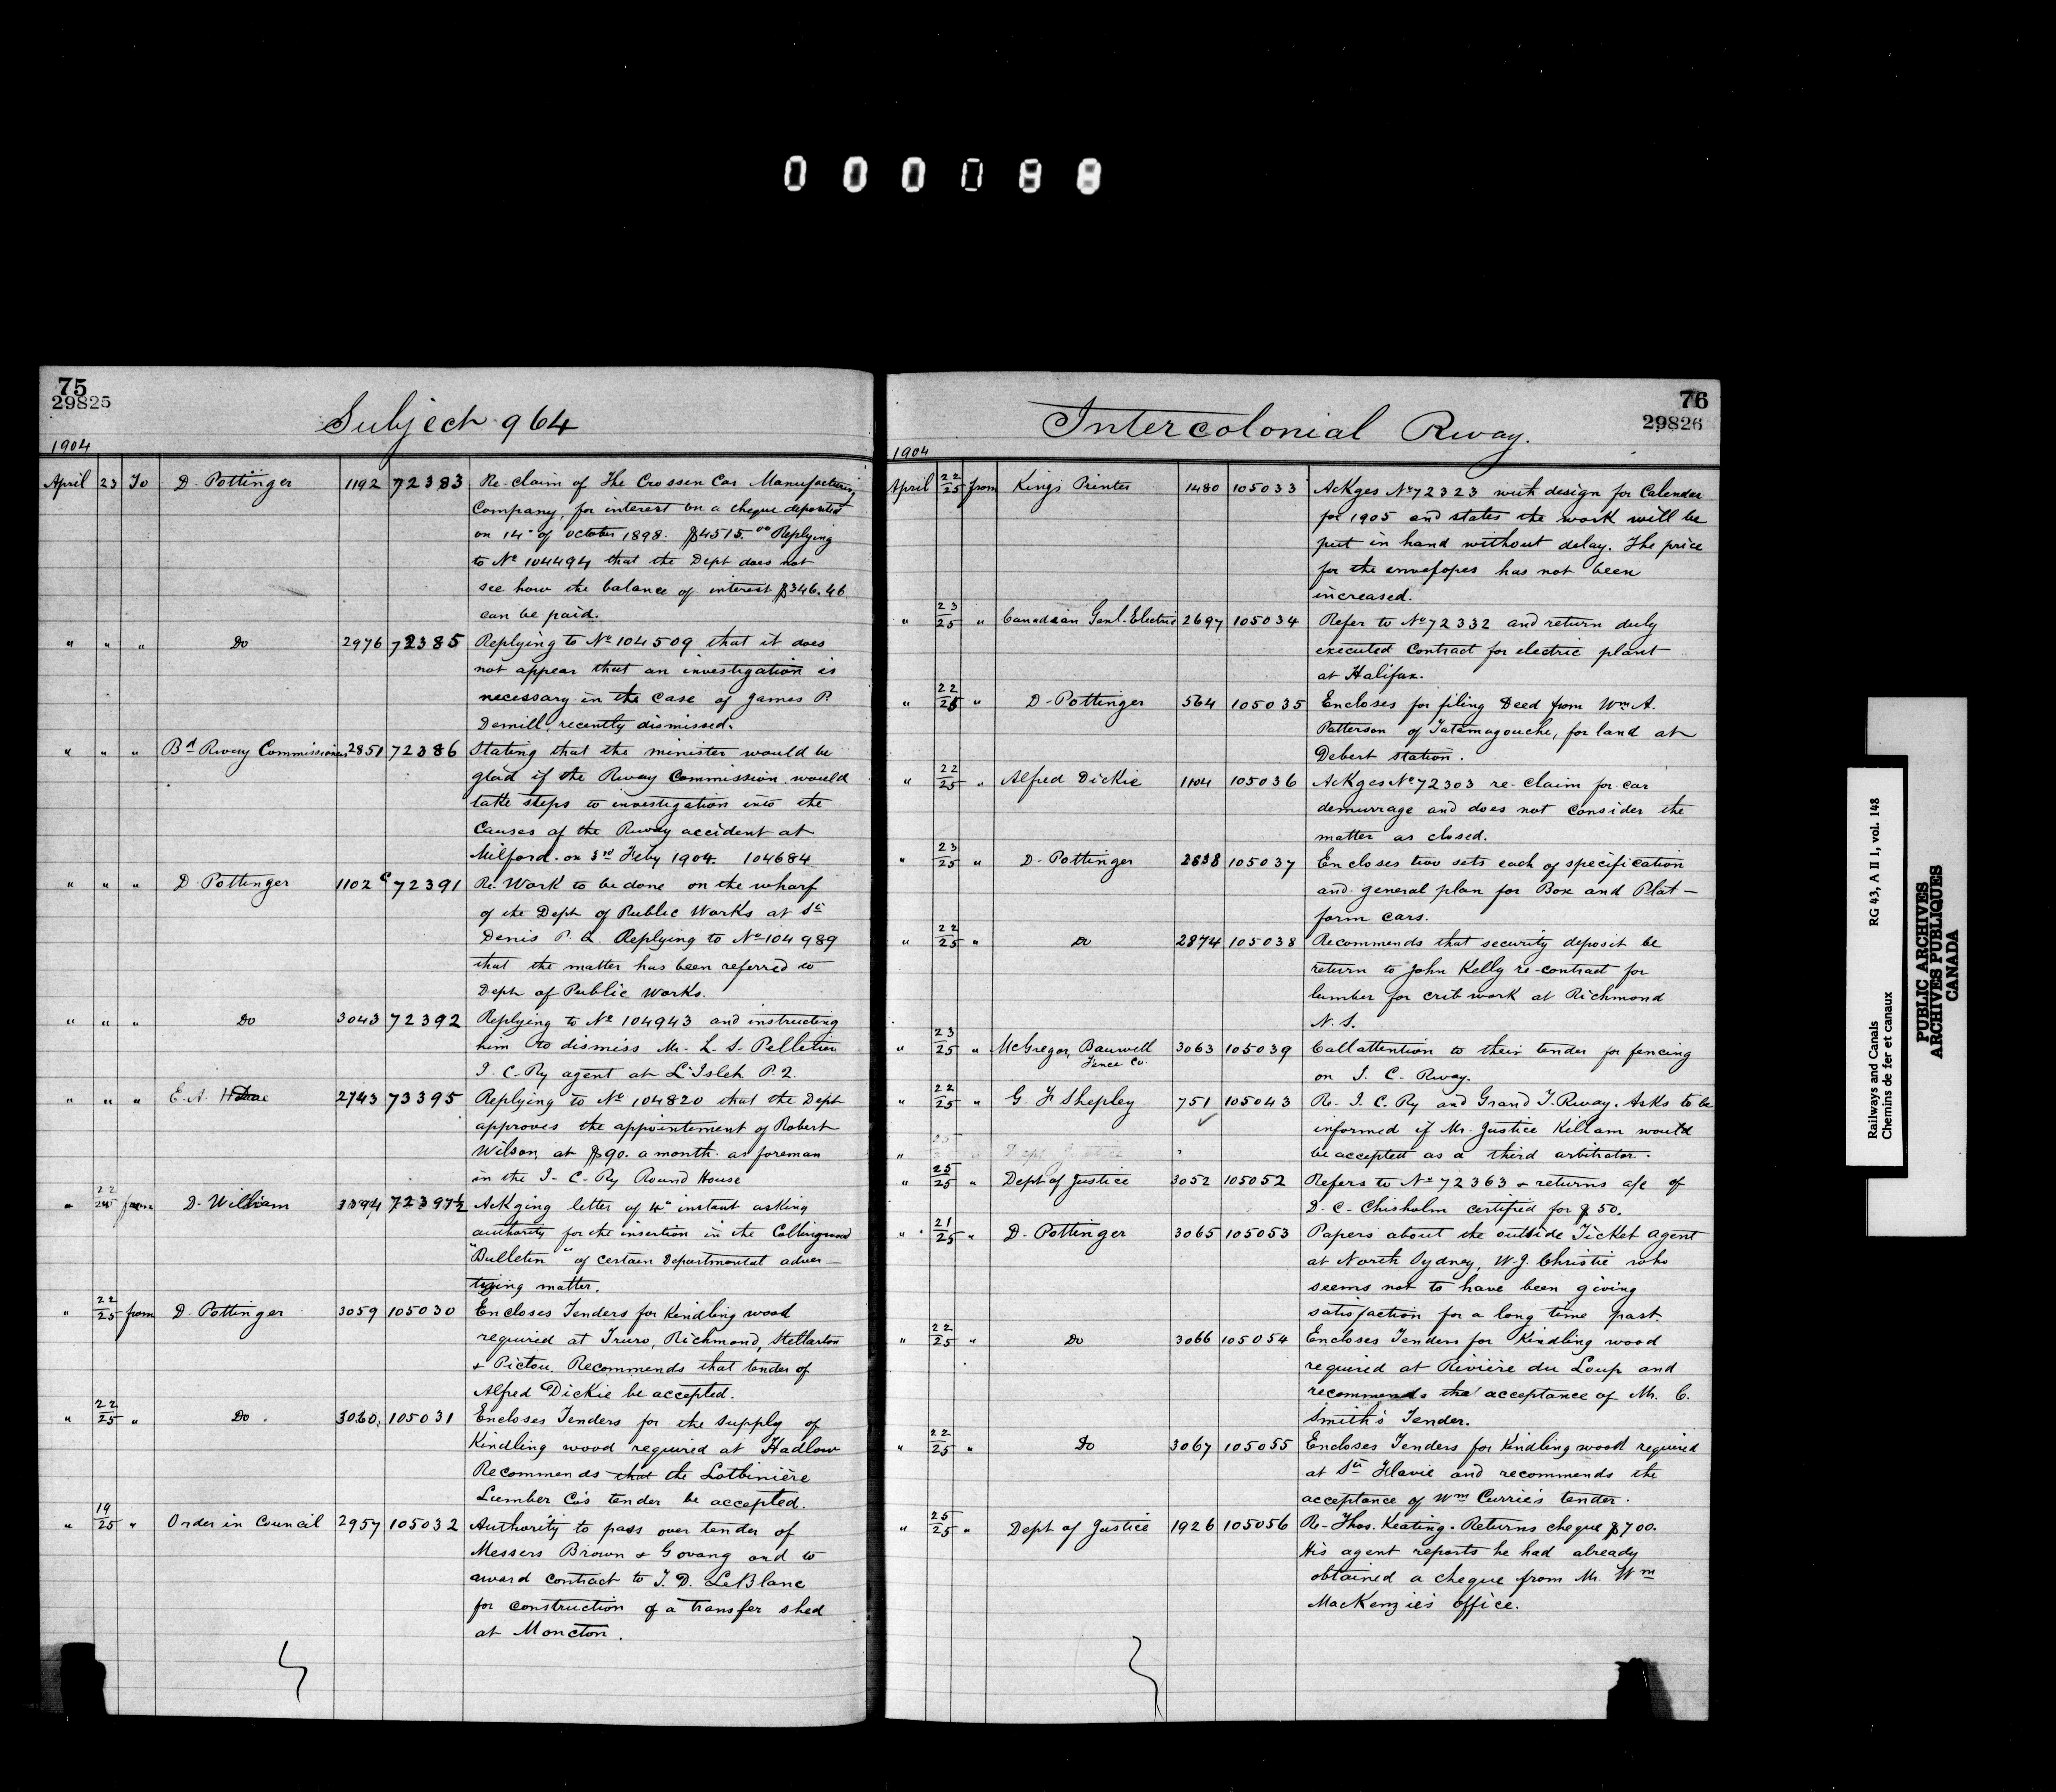 000098
75
29825
Subject 964
1904
April 23 To D. Pottinger 1192 72383 Re-claim of The Crossen Car Manufacturing
Company, for interest on a cheque deposited
on 14" of october 1898. $4515.00 Replying
to No 104494 that the Dept does not
see how the balance of interest $346.46
can be paid.
" " " Do 2976 72385 Replying to No 104509 that it does
not appear that an investigation is
necessary in the case of James P.
Demill, recently dismissed.
" " " Bd Rway Commissioners 2851 72386 Stating that the minister would be
glad if the Rway Commission would
take steps to investigation into the
causes of the Rway accident at
Milford on 3rd Feby 1904. 104684
" " " D. Pottinger 1102 c 72391 Re. Work to be done on the wharf
of the Dept of Public Works at St
Denis P.Q. Replying to No 104989
that the matter has been referred to
Dept of Public Works.
" " " Do 3043 72392 Replying to No 104943 and instructing
him to dismiss Mr. L. S. Pelletier
I. C. Ry agent at L'Islet P.Q.
" " " E. A. 2743 73395 Replying to No 104820 that the Dept
approves the appointement of Robert
Wilson at $90. a month as foreman
in the I. C. Ry Round House
" from D. William 72397½ Ackging letter of 4" instant asking
authority for the insertion in the Collingwood
"Bulletin" of certain Departmental adver-
tizing matter.
" 22/25 from D. Pottinger 3059 105030 Encloses Tenders for Kindling wood
required at Truro, Richmond, Stellarton
& Pictou. Recommends that tender of
Alfred Dickie be accepted.
" 22/25 " Do. 3060. 105031 Encloses Tenders for the supply of
Kindling wood required at Hadlow
Recommends that the Lotbinière
Lumber Co's tender be accepted.
" 19/25 " Order in Council 2957 105032 Authority to pass over tender of
Messers Brown & Govang and to
award contract to T. D. LeBlanc
for construction of a transfer shed
at Moncton.
76
29826
Intercolonial Rway.
1904
April 22/25 from Kings Printer 1480 105033 Ackges No 72323 with design for Calendar
for 1905 and states the work will be
put in hand without delay. The price
for the envefopes has not been
increased.
" 23/25 " Canadian Genl. Electric 2697 105034 Refer to No 72332 and return duly
executed Contract for electric plant
at Halifax.
" 22/25 " D. Pottinger 564 105035 Encloses for filing Deed from Wm A.
Patterson of Tatamagouche, for land at
Debert station.
" 22/25 " Alfred Dickie 1104 105036 Ackges No 72303 re-claim for car
demurrage and does not consider the
matter as closed.
" 23/25 " D. Pottinger 2838 105037 Encloses two sets each of specification
and general plan for Box and Plat-
form cars.
" 22/25 " Do 2874 105038 Recommends that security deposit be
return to John Kelly re-contract for
lumber for crib work at Richmond
N. S.
" 23/25 " McGregor, Banwell 3063 105039 Call attention to their tender for fencing
Fence Co.
on I. C. Rway.
" 22/25 " G. F Shepley 751 105043 Re. I. C. Ry and Grand T. Rway. Asks to be
informed if Mr. Justice Killam would
be accepted as a third arbitrator.
" 25/25 " Dept of Justice 3052 105052 Refers to No 72363 & returns a/c of
D. C. Chisholm certified for $50.
" 21/25 " D. Pottinger 3065 105053 Papers about the outside Ticket agent
at North Sydney, W. J. Christie who
seems not to have been giving
satisfaction for a long time past.
" 22/25 " Do 3066 105054 Encloses Tenders for Kindling wood
required at Rivière du Loup and
recommends the acceptance of Mr. C.
Smith's Tender.
" 22/25 " Do 3067 105055 Encloses Tenders for Kindling wood required
at Ste Flavie and recommends the
acceptance of Wm Currie's tender.
" 25/25 " Dept of Justice 1926 105056 Re- Thos. Keating. Returns cheque $700.
His agent reports he had already
obtained a cheque from Mr. Wm
MacKenzie's office.
Railways and Canals RG 43, A II 1, vol. 148
Chemins de fer et canaux
PUBLIC ARCHIVES
ARCHIVES PUBLIQUES
CANADA